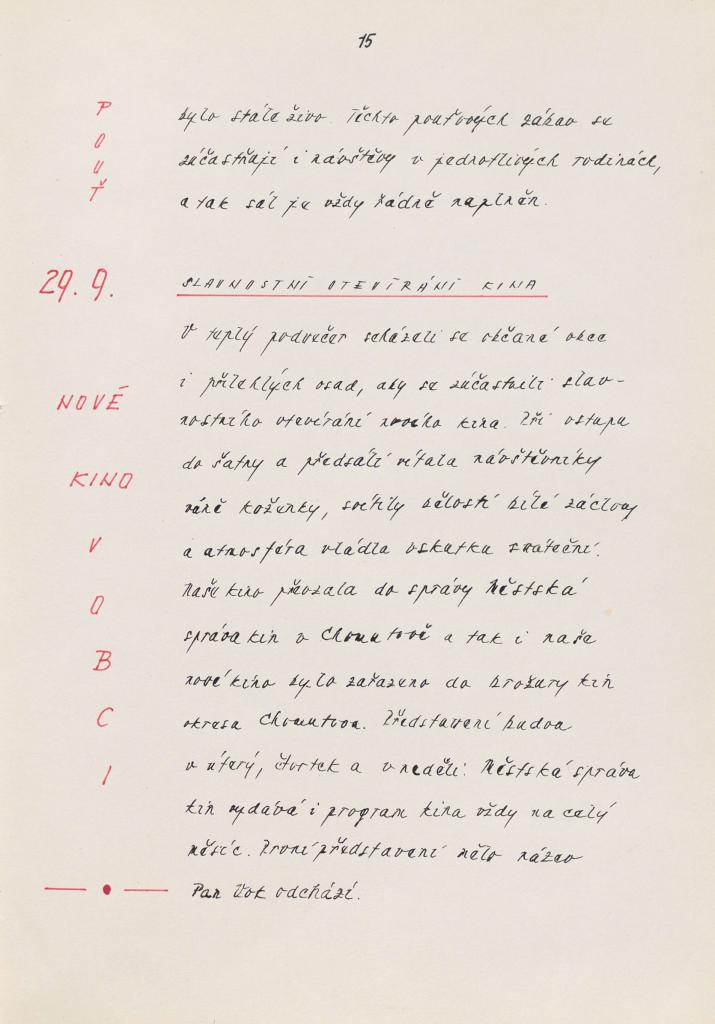 15
POUŤ
bylo stále živo. Těchto pouťových zábav se
zúčastňují i návštěvy v jednotlivých rodinách,
a tak sál je vždy řádně naplněn.
29. 9.
SLAVNOSTNÍ OTEVÍRÁNÍ KINA
V teplý podvečer scházeli se občané obce
i přilehlých osad, aby se zúčastnili slav-
nostního otevírání nového kina. Při vstupu
do šatny a předsálí vítala návštěvníky
vůně koženky, svítily bělostí bílé záclony
a atmosféra vládla vskutku sváteční.
Naše kino převzala do správy Městská
správa kin v Chomutově a tak i naše
nové kino bylo zařazeno do brožury kin
okresu Chomutova. Představení budou
v úterý, čtvrtek a v neděli. Městská správa
kin vydává i program kina vždy na celý
měsíc. První představení mělo název
Pan Vok odchází.
NOVÉ
KINO
V
OBCI